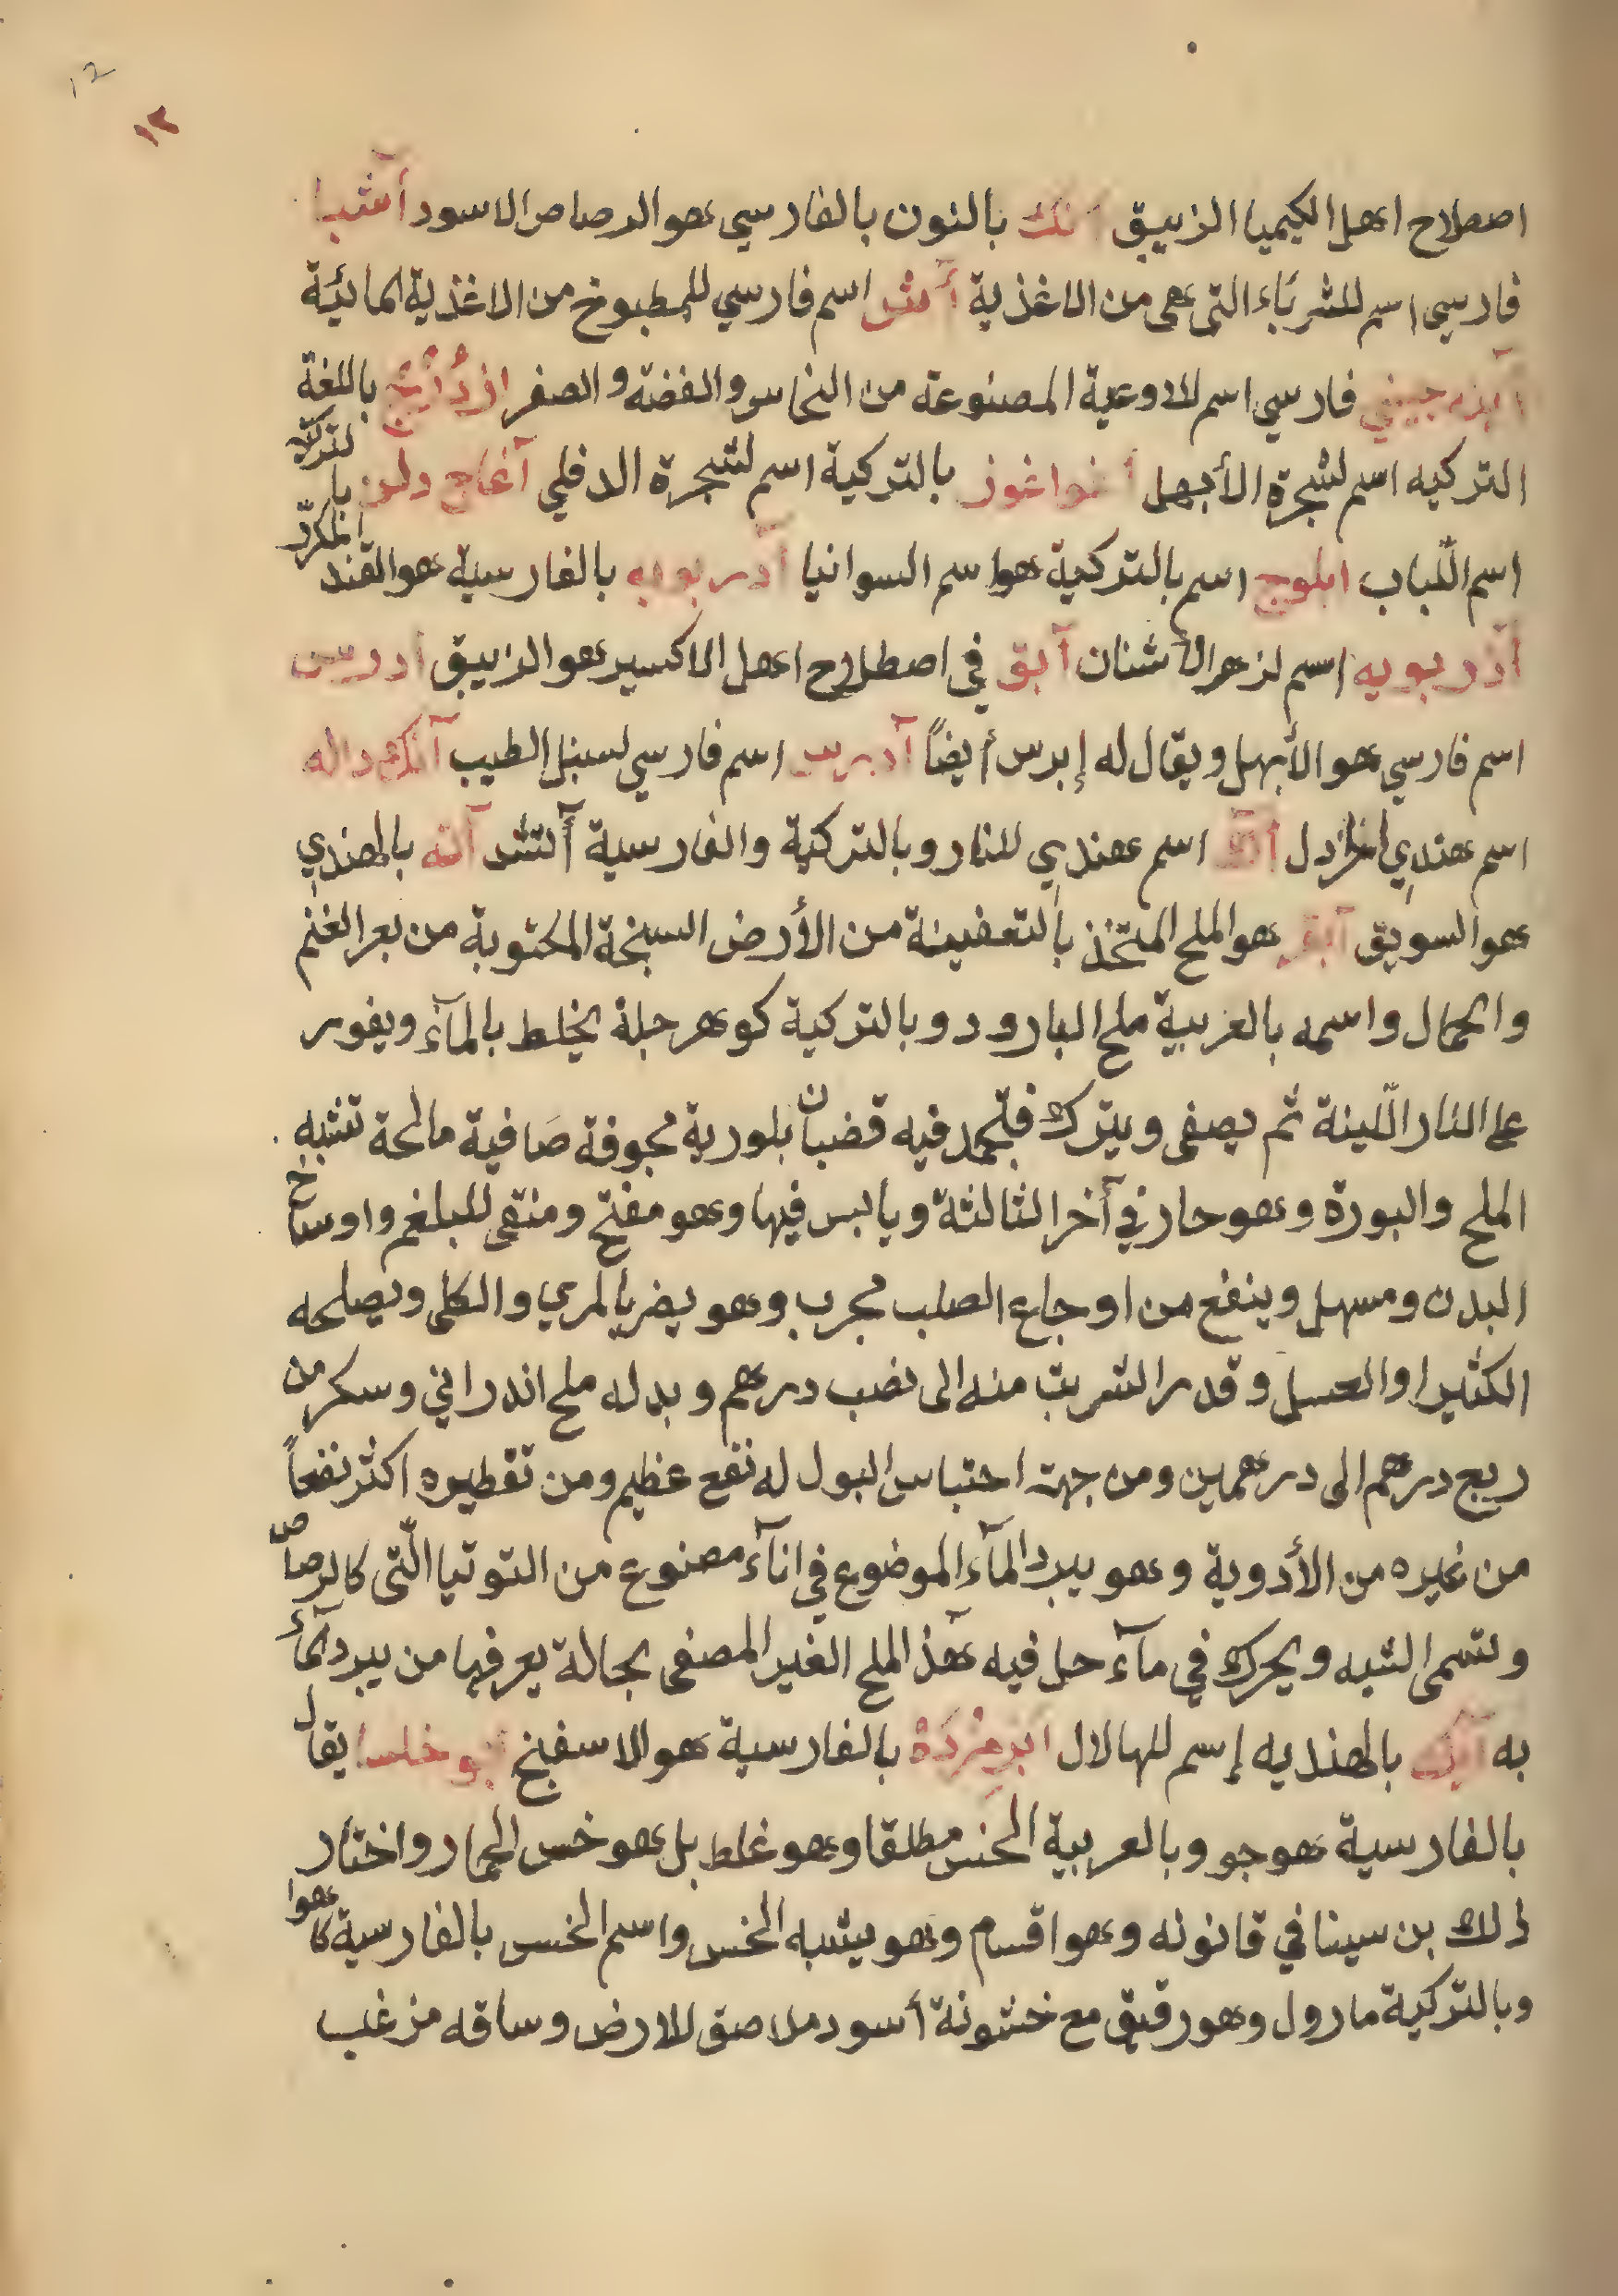 12
١٢
اصطلاح اهل الكيميا الزيبق انك بالنون بالفارسي هو الرصاص الاسود آشبا
فارسي اسم للشرباء التى هى من الاغذية آش اسم فارسي للمطبوخ من الاغذية المائية
جيني فارسي اسم للاوعية المصنوعة من النحاس والفضه والصفر باللغة
التركيه اسم لشجرة الأبهل اغواغوز بالتركية اسم لشجرة الدفلي آغاج دلن بالتركية
اسم اللّباب ابلوج اسم بالتركية هو اسم السوانيا آدربويه بالفارسية هو القند المكرّر
آذربويه اسم لزهر الأشنان آبق في اصطلاح اهل الاكسير هو الزيبق ادرس
اسم فارسي هو الأبهل ويقال له إبرس أيضاً آدبريس اسم فارسي لسنبل الطيب آنك داله
اسم هندي الخردل اسم هندي للنار وبالتركية والفارسية أتش آته بالهندي
هو السويق آبقر هو الملح المتخذ بالتعفينة من الأرض السبخة المحتوية من بعر الغنم
والجمال واسمه بالعربية ملح البارود وبالتركية كوهرجلة يخلط بالمآء ويفور
على النار اللّينة ثم يصفى ويترك فيجمد فيه قضبان بلورية مجوفة صَافية مالحة تشبه
الملح والبورة وهو حار في آخر الثالثة ويابس فيها وهو مفتح ومنقى للبلغم واوساخ
البدن ومسهل وينفع من اوجاع الصلب مجرب وهو يضر بالمري والكلى ويصلحه
الكثيرا والعسل وقدر الشربت منه الى نصب درهم وبدله ملح اندراني وسكر من
ربع درهم الى درهمين ومن جهة احتباس البول له نفع عظيم ومن تقطيره اكثر نفعاً
من غيره من الأدوية وهو يبرد المآء الموضوع في انآء مصنوع من التوتيا الّتى كالرصاص
وتسمى الشبه ويحرك في مآء حل فيه هذ الملح الغير المصفى بحالة يعرفها من يبرد المآء
به بالهنديه إسم للهالال ابرمُرْدَهْ بالفارسية هو الاسفنج ابو خلسا يقال
بالفارسية هوجو وبالعربية الخس مطلقا وهو غلط بل هو خس الحمار واختار
ذلك بن سينا في قانونه وهو اقسام وهو يشبه الخس واسم الخس بالفارسية كاهوا
وبالتركية مارول وهو رقيق مع خشونة أسود ملاصق للارض وساقه مزغب